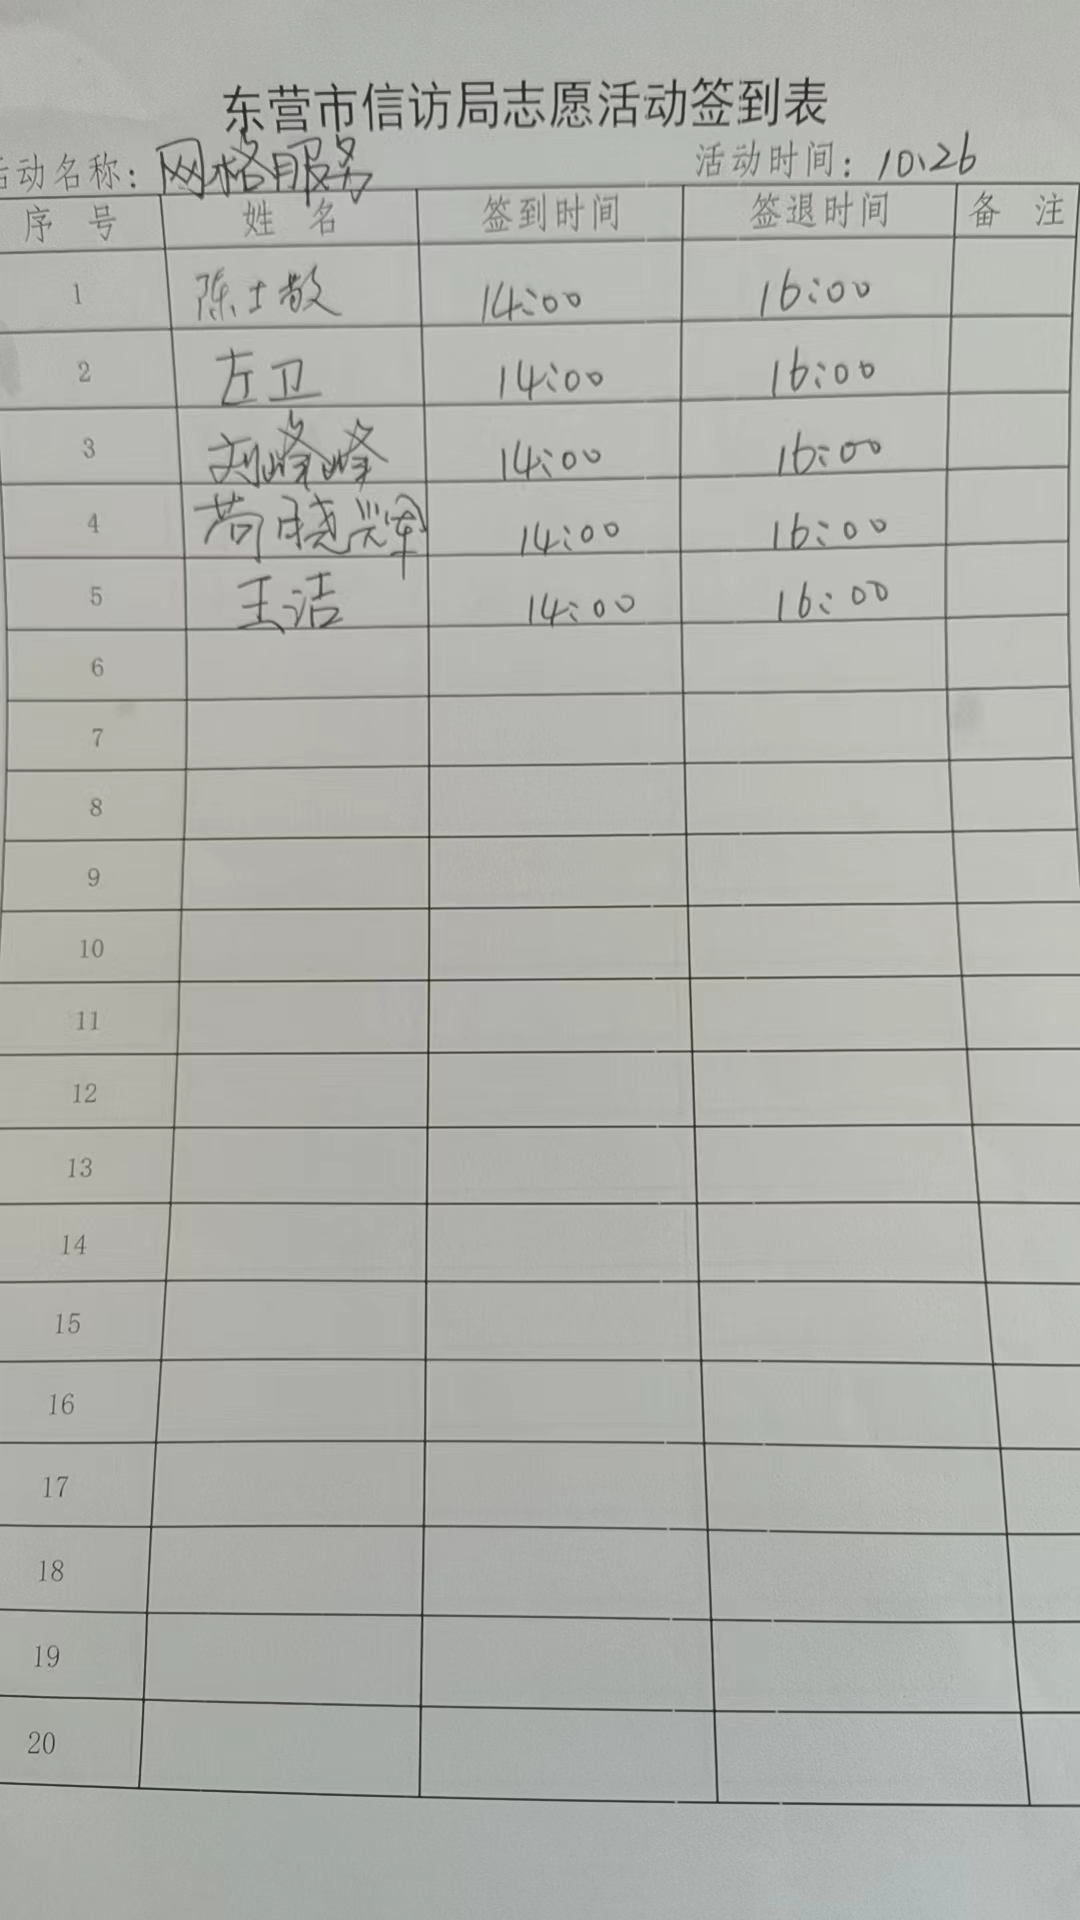 东营市信访局志愿活动签到表
活动名称：网格服务 活动时间：10.26
序 号 姓 名 签到时间 签退时间 备 注
1 陈士敬 14:00 16:00
2 左卫 14:00 16:00
3 刘峰峰 14:00 16:00
4 苟晓辉 14:00 16:00
5 王洁 14:00 16:00
6
7
8
9
10
11
12
13
14
15
16
17
18
19
20